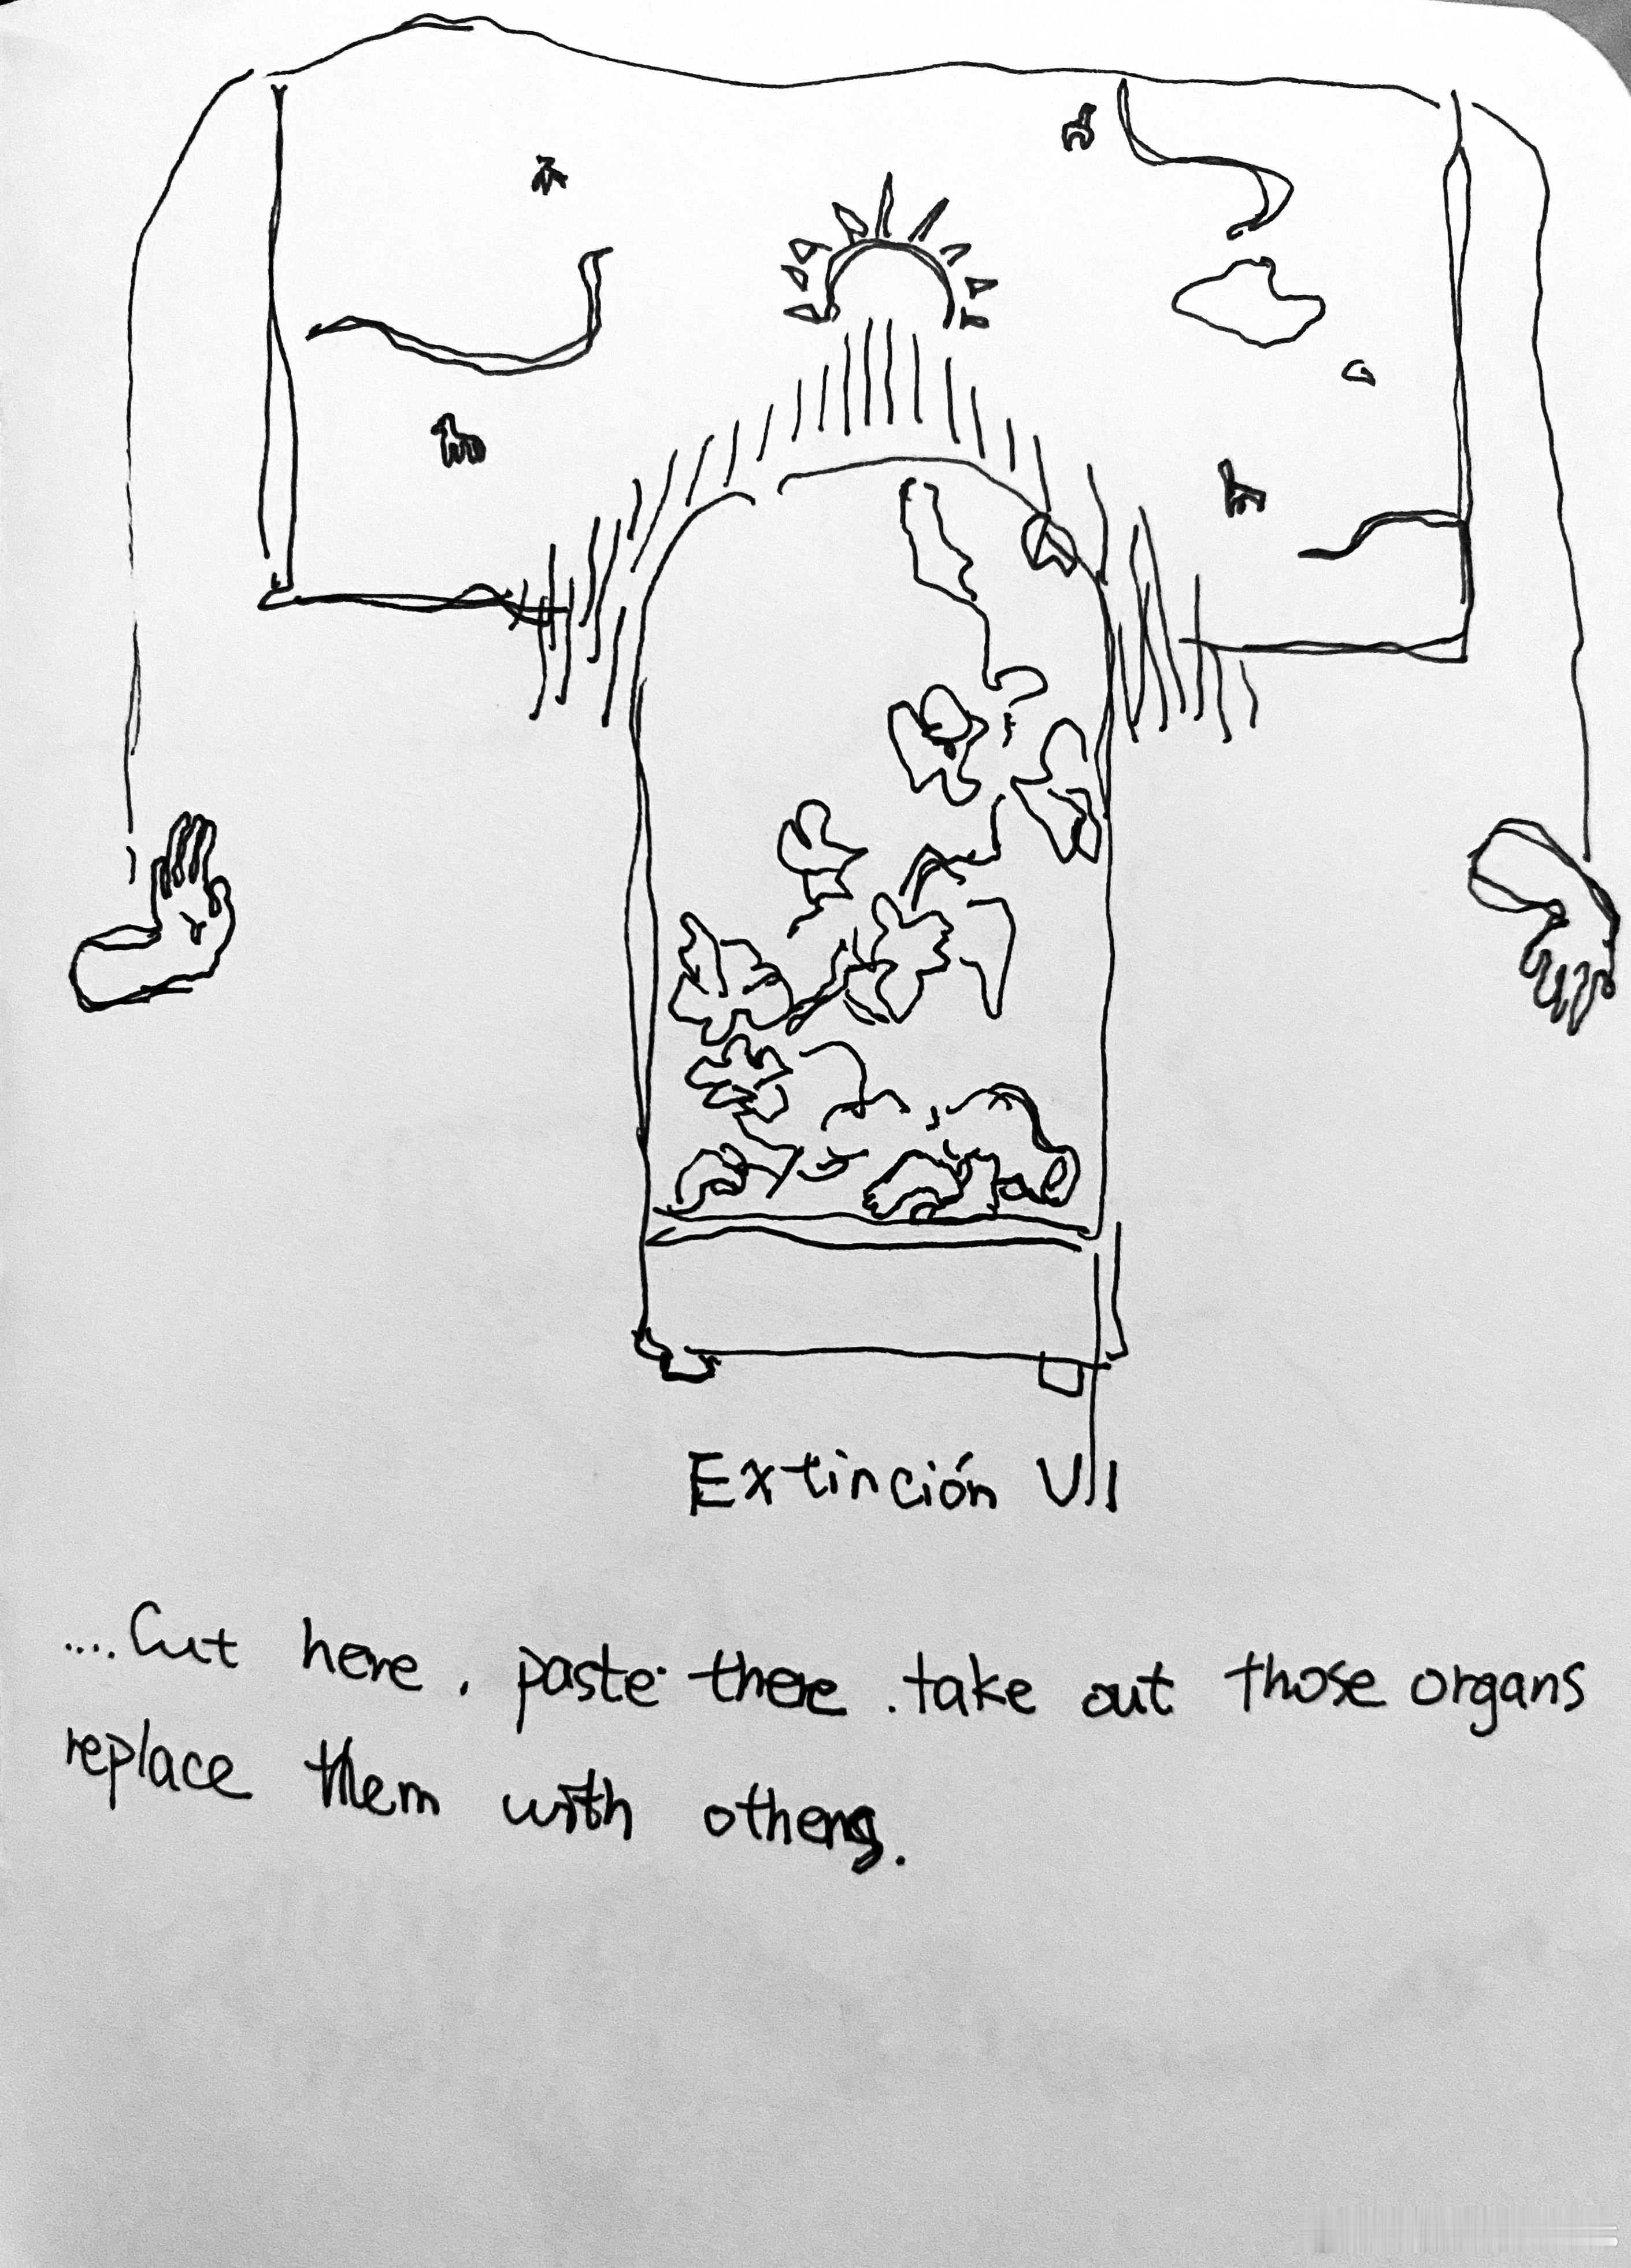 Extinción VII
....Cut here. paste there. take out those organs
replace them with others.